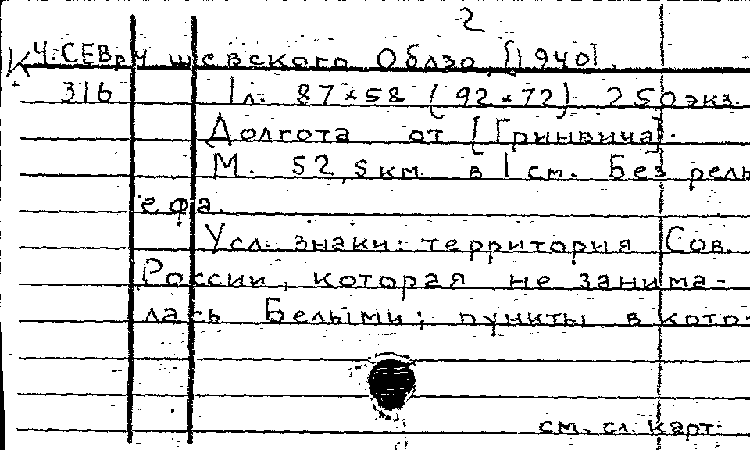 2
К Ч.СЕВ шевского Облзо, [1940].
316 1 л. 87×58 (92×72) 250 экз.
Долгота от [Гринвича].
М. 52,5 км в 1 см. Без рель
ефа.
Усл. знаки: территория Сов.
России, которая не занима-
лась Белыми; пункты в кото-
см. сл. карт.